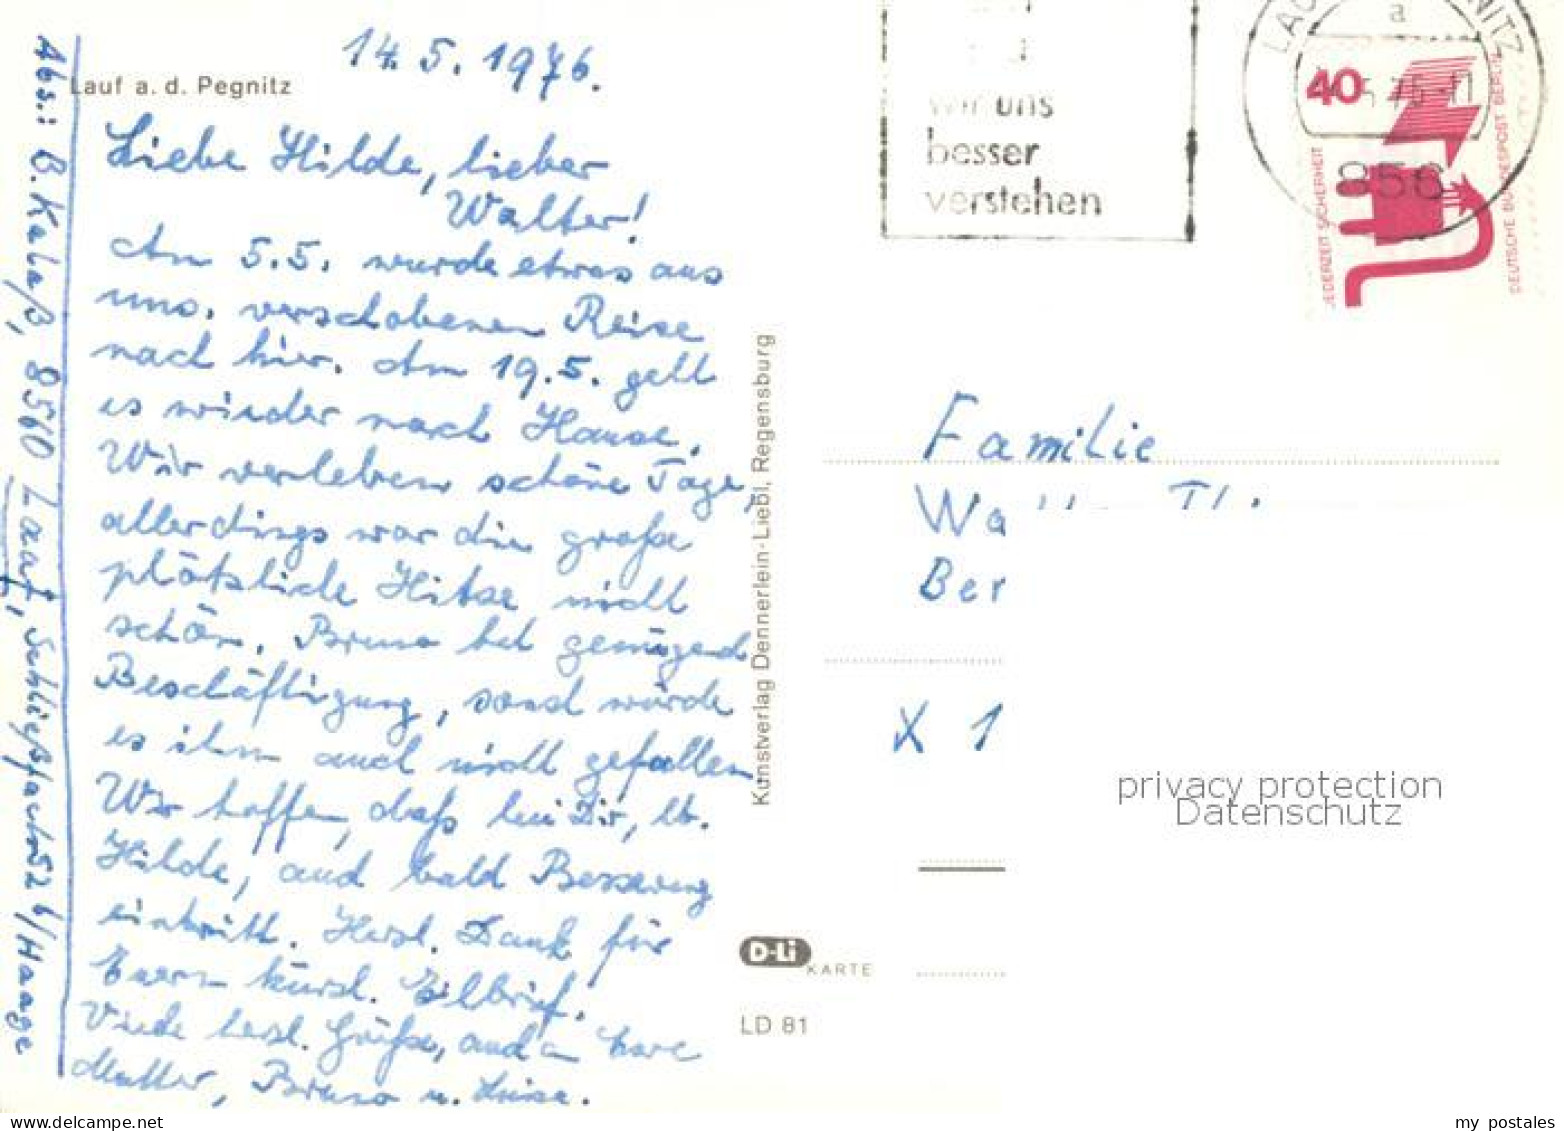 Lauf a. d. Pegnitz
14.5.1976.
Liebe Hilde, lieber
Walter!
Am 5.5. wurde etwas aus
uns. verschobenen Reise
nach hier. Am 19.5. geht
es wieder nach Hause.
Wir verleben schöne Tage,
allerdings war die große
plötzliche Hitze nicht
schön. Bruno hat genügend
Beschäftigung, sonst würde
es ihm auch nicht gefallen.
Wir hoffen, daß bei Dir, lb.
Hilde, auch bald Besserung
eintritt. Herzl. Dank für
Euern kürzl. Eilbrief.
Viele herzl. Grüße, auch an Eure
Mutter, Bruno u. Luise.
Abs.: B. Kalaß, 8560 Lauf, Schließfach 52 b/Haage
Kunstverlag Dennerlein-Liebl, Regensburg
D-Li
KARTE
LD 81
wir uns
besser
verstehen
a
856
40
JEDERZEIT SICHERHEIT
DEUTSCHE BUNDESPOST BERLIN
Familie
Wa
Ber
X 1
privacy protection
Datenschutz
my postales
www.delcampe.net